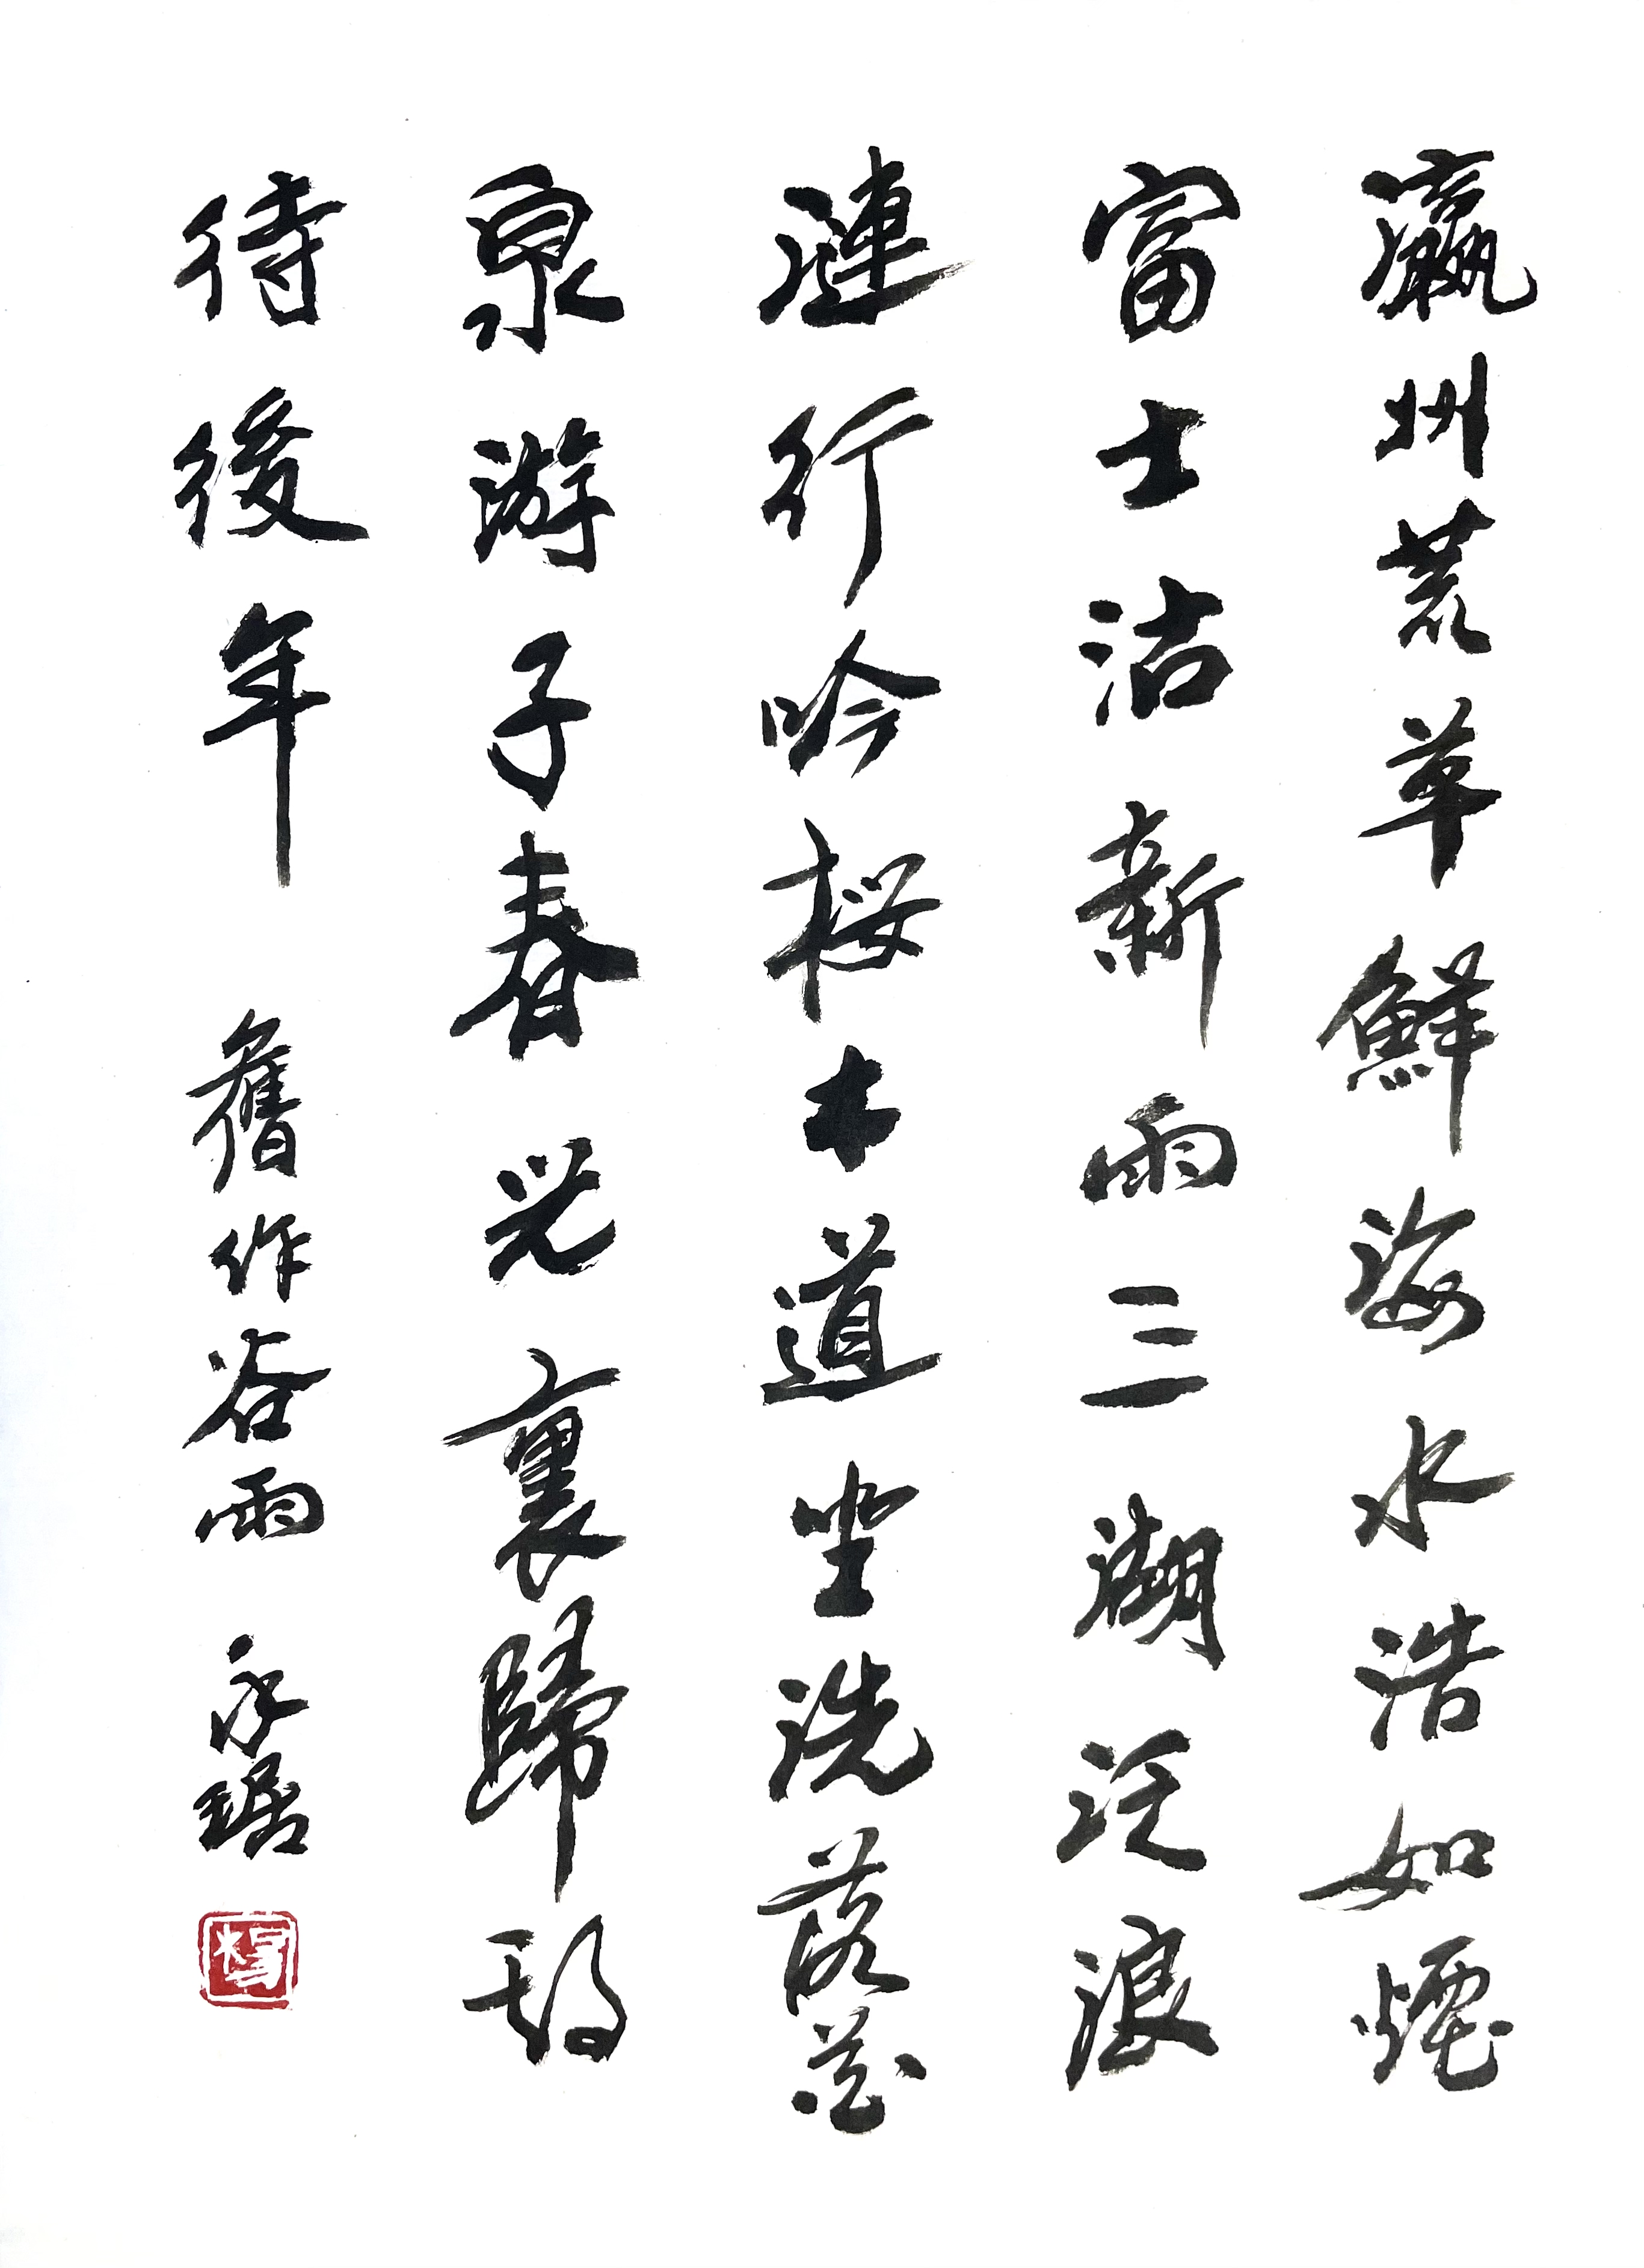 瀛州荒草鮮海水浩如煙
富士沾新雨三湖泛浪
漣行吟桜木道坐洗落花
泉游子春光裏歸期
待後年 舊作谷雨 永琚
楊